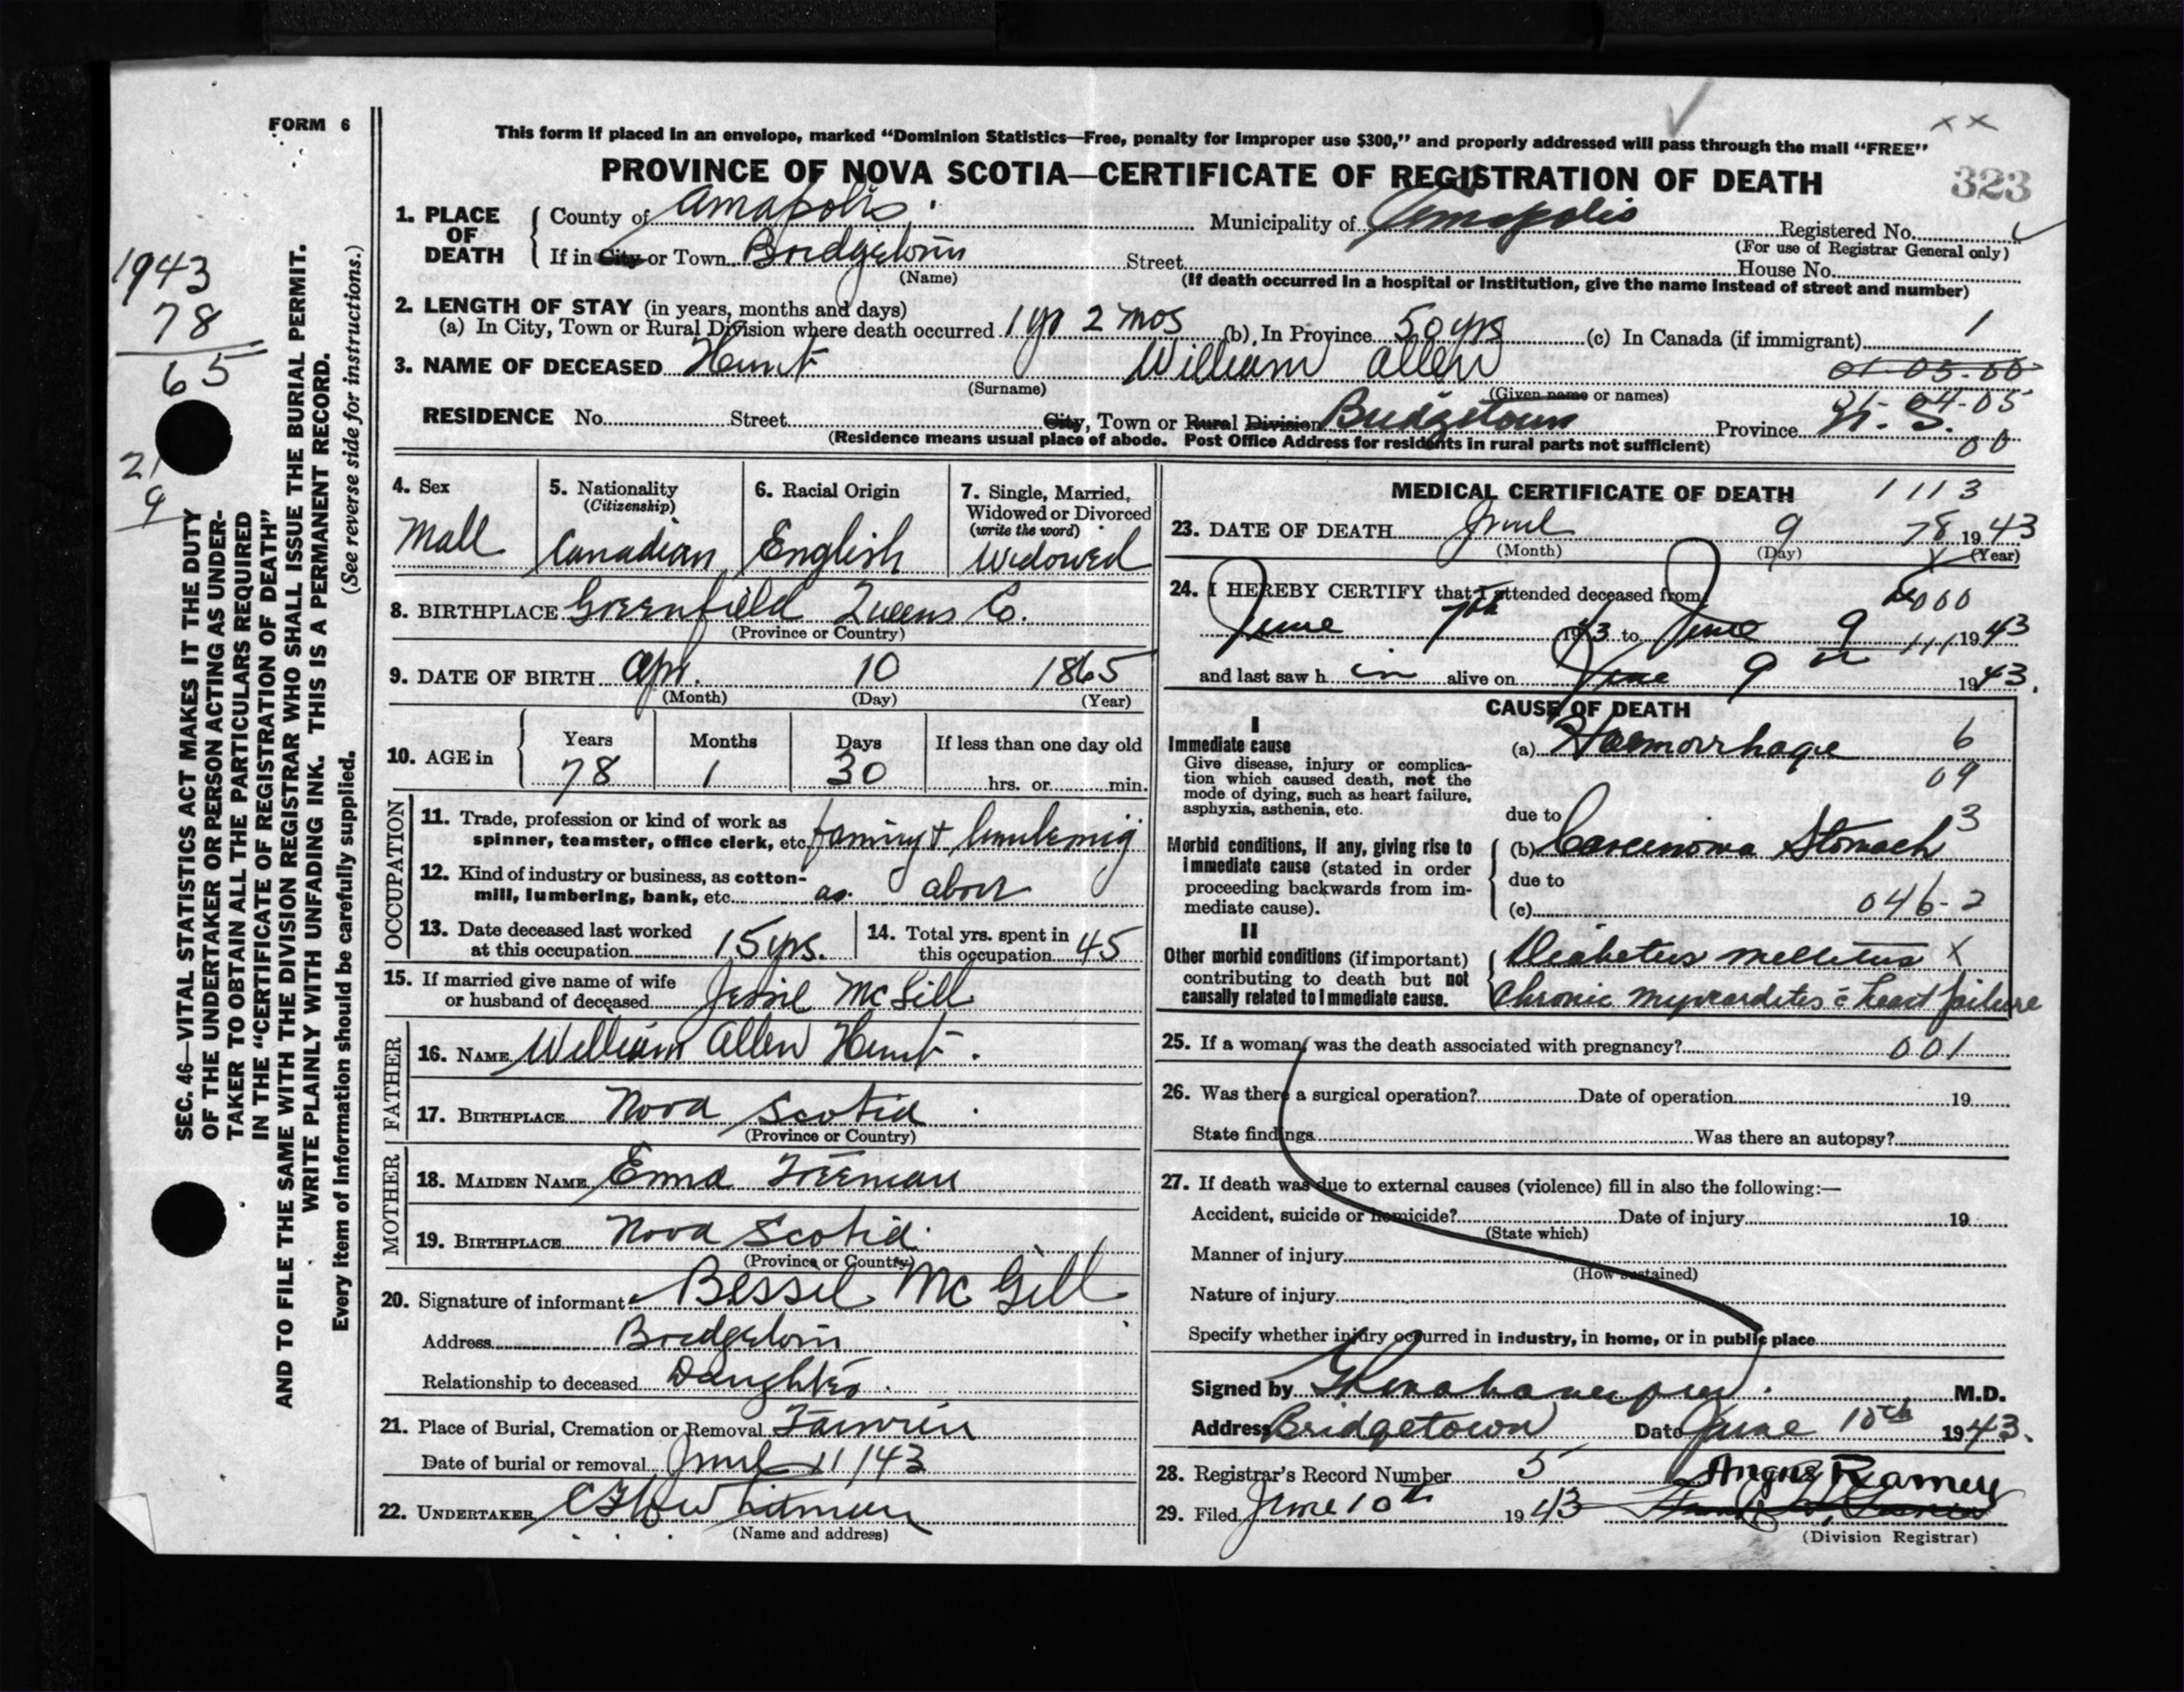 FORM 6
This form if placed in an envelope, marked “Dominion Statistics—Free, penalty for improper use $300,” and properly addressed will pass through the mail “FREE”
x x
PROVINCE OF NOVA SCOTIA—CERTIFICATE OF REGISTRATION OF DEATH
323
1. PLACE OF DEATH
County of Annapolis Municipality of Annapolis Registered No.
(For use of Registrar General only)
If in City or Town Bridgetown Street House No.
(Name) (If death occurred in a hospital or institution, give the name instead of street and number)
2. LENGTH OF STAY (in years, months and days)
(a) In City, Town or Rural Division where death occurred 1 yr 2 mos (b) In Province 50 yrs (c) In Canada (if immigrant) 1
3. NAME OF DECEASED Hunt William Allen 01-03-00
(Surname) (Given name or names) 21-04-05
RESIDENCE No. Street City, Town or Rural Division Bridgetown Province N. S.
(Residence means usual place of abode. Post Office Address for residents in rural parts not sufficient) 00
4. Sex 5. Nationality (Citizenship) 6. Racial Origin 7. Single, Married, Widowed or Divorced (write the word)
Male Canadian English Widowed
8. BIRTHPLACE Greenfield Queens Co.
(Province or Country)
9. DATE OF BIRTH Apr. 10 1865
(Month) (Day) (Year)
10. AGE in Years Months Days If less than one day old
78 1 30 hrs. or min.
OCCUPATION
11. Trade, profession or kind of work as
spinner, teamster, office clerk, etc. farming & lumbering
12. Kind of industry or business, as cotton-
mill, lumbering, bank, etc. as above
13. Date deceased last worked
at this occupation 15 yrs.
14. Total yrs. spent in
this occupation 45
15. If married give name of wife
or husband of deceased Jessie McGill
FATHER
16. NAME William Allen Hunt.
17. BIRTHPLACE Nova Scotia
(Province or Country)
MOTHER
18. MAIDEN NAME Emma Freeman
19. BIRTHPLACE Nova Scotia
(Province or Country)
20. Signature of informant Bessie McGill
Address Bridgetown
Relationship to deceased Daughter
21. Place of Burial, Cremation or Removal
Date of burial or removal June 11/43
22. UNDERTAKER
(Name and address)
MEDICAL CERTIFICATE OF DEATH 1113
23. DATE OF DEATH June 9 78 1943
(Month) (Day) (Year)
24. I HEREBY CERTIFY that I attended deceased from 000
June 7th 1943 to June 9 1943
and last saw h im alive on June 9th 1943.
CAUSE OF DEATH
I
Immediate cause
Give disease, injury or complica-
tion which caused death, not the
mode of dying, such as heart failure,
asphyxia, asthenia, etc.
(a) Haemorrhage 6
09
due to 3
Morbid conditions, if any, giving rise to
immediate cause (stated in order
proceeding backwards from im-
mediate cause).
(b) Carcinoma Stomach
due to
(c) 046-2
II
Other morbid conditions (if important)
contributing to death but not
causally related to immediate cause.
Diabetus mellitus x
Chronic myocarditis c heart failure
25. If a woman, was the death associated with pregnancy? 001
26. Was there a surgical operation? Date of operation 19
State findings Was there an autopsy?
27. If death was due to external causes (violence) fill in also the following:—
Accident, suicide or homicide? Date of injury 19
(State which)
Manner of injury
(How sustained)
Nature of injury
Specify whether injury occurred in industry, in home, or in public place
Signed by M.D.
Address Bridgetown Date June 10th 1943.
28. Registrar's Record Number 5 Angus Ramey
29. Filed June 10th 1943
(Division Registrar)
1943
78
65
21
9
SEC. 46—VITAL STATISTICS ACT MAKES IT THE DUTY
OF THE UNDERTAKER OR PERSON ACTING AS UNDER-
TAKER TO OBTAIN ALL THE PARTICULARS REQUIRED
IN THE “CERTIFICATE OF REGISTRATION OF DEATH”
AND TO FILE THE SAME WITH THE DIVISION REGISTRAR WHO SHALL ISSUE THE BURIAL PERMIT.
WRITE PLAINLY WITH UNFADING INK. THIS IS A PERMANENT RECORD.
Every item of information should be carefully supplied. (See reverse side for instructions.)